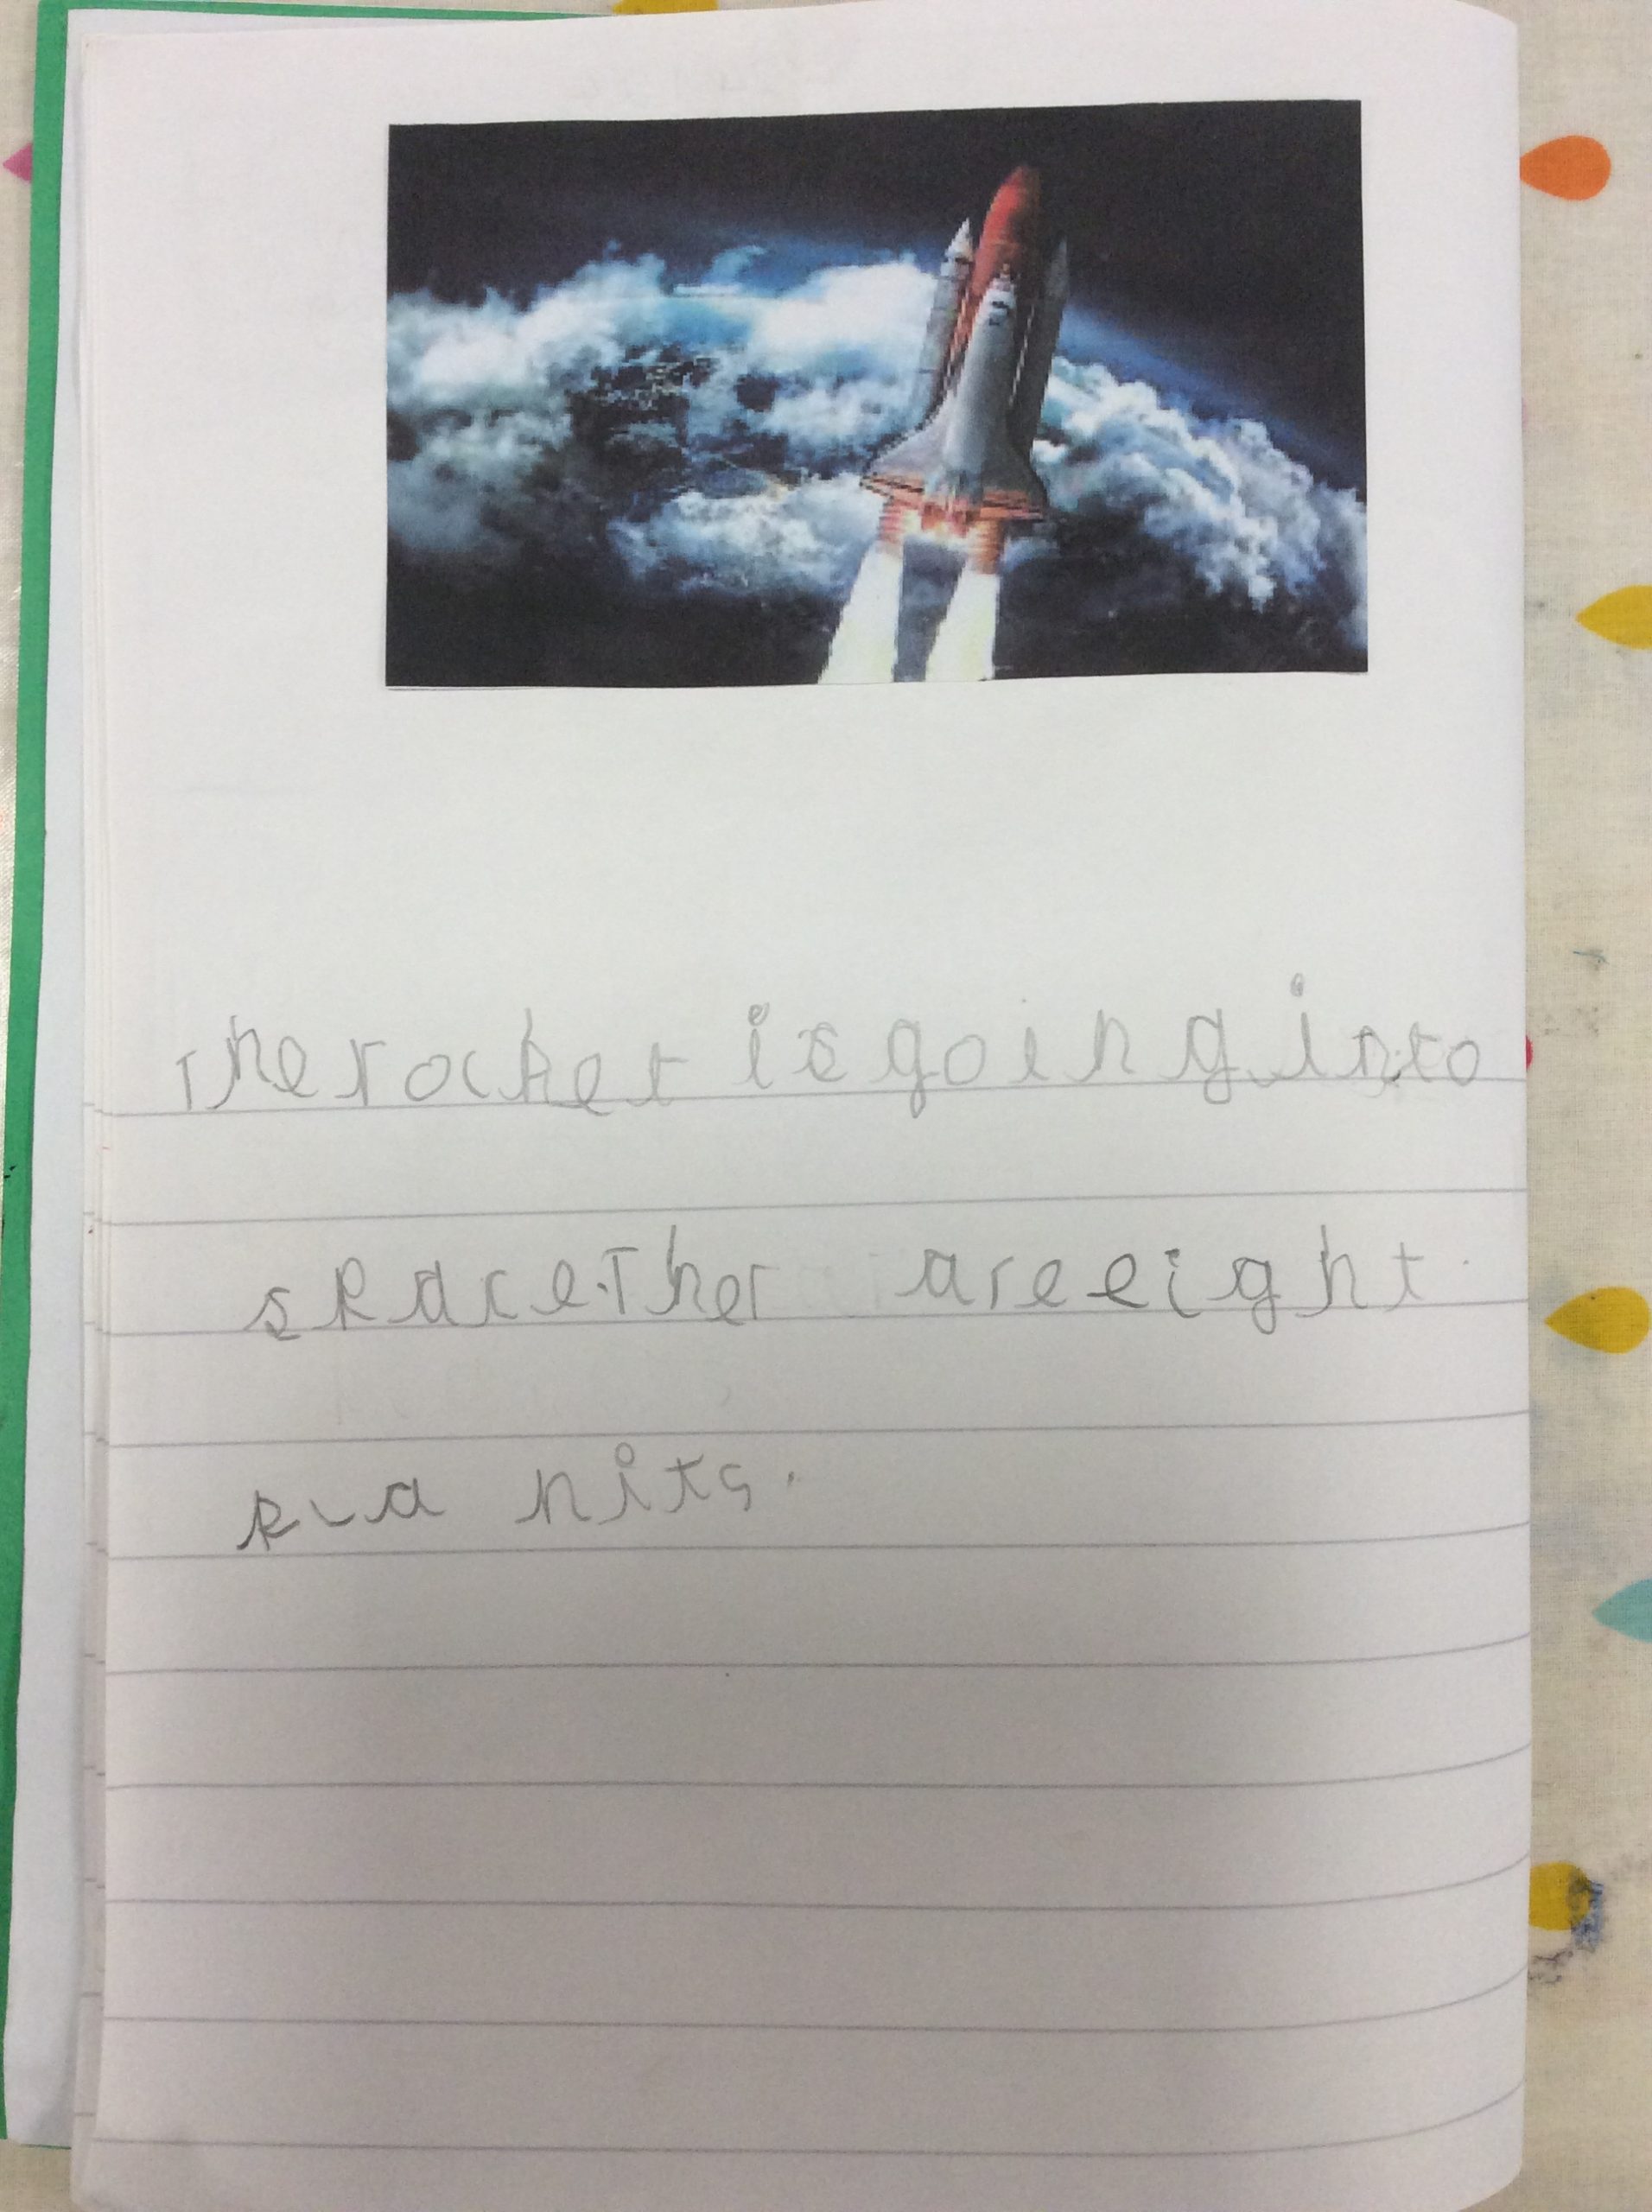 The rocket is going into
space. Ther are eight
pla nits.